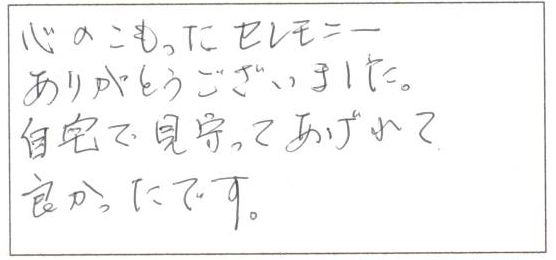 心のこもったセレモニー
ありがとうございました。
自宅で見守ってあげれて
良かったです。